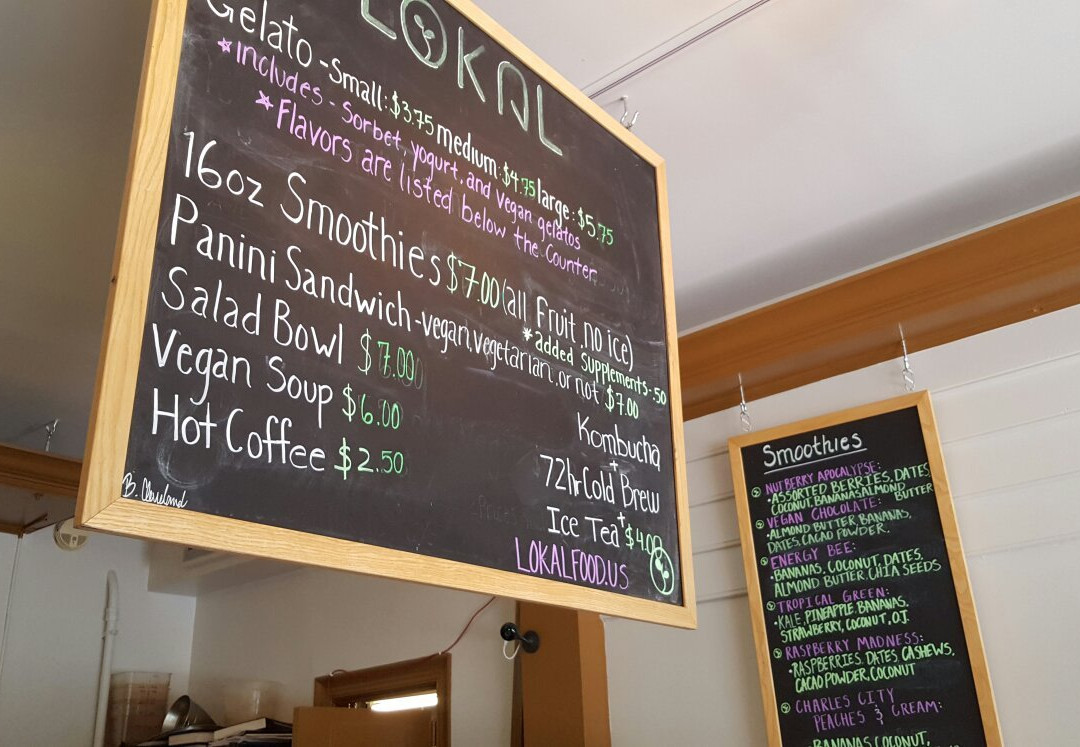 LOKAL
Gelato - Small: $3.75 medium: $4.75 large: $5.75
*includes - Sorbet, yogurt, and vegan gelatos
*Flavors are listed below the Counter
16oz Smoothies $7.00 (all fruit, no ice)
*added Supplements-.50
Panini Sandwich - vegan, vegetarian, or not $7.00
Salad Bowl $7.00
Vegan Soup $6.00
Hot Coffee $2.50
Kombucha
+
72hr Cold Brew
+
Ice Tea $4.00
LOKALFOOD.US
B. Cleveland
Smoothies
NUTBERRY APOCALYPSE:
•ASSORTED BERRIES, DATES,
COCONUT, BANANAS, ALMOND BUTTER
VEGAN CHOCOLATE:
•ALMOND BUTTER, BANANAS,
DATES, CACAO POWDER.
ENERGY BEE:
•BANANAS, COCONUT, DATES,
ALMOND BUTTER, CHIA SEEDS
TROPICAL GREEN:
•KALE, PINEAPPLE, BANANAS,
STRAWBERRY, COCONUT, O.J.
RASPBERRY MADNESS:
•RASPBERRIES, DATES, CASHEWS,
CACAO POWDER, COCONUT
CHARLES CITY
PEACHES & CREAM:
•BANANAS, COCONUT,